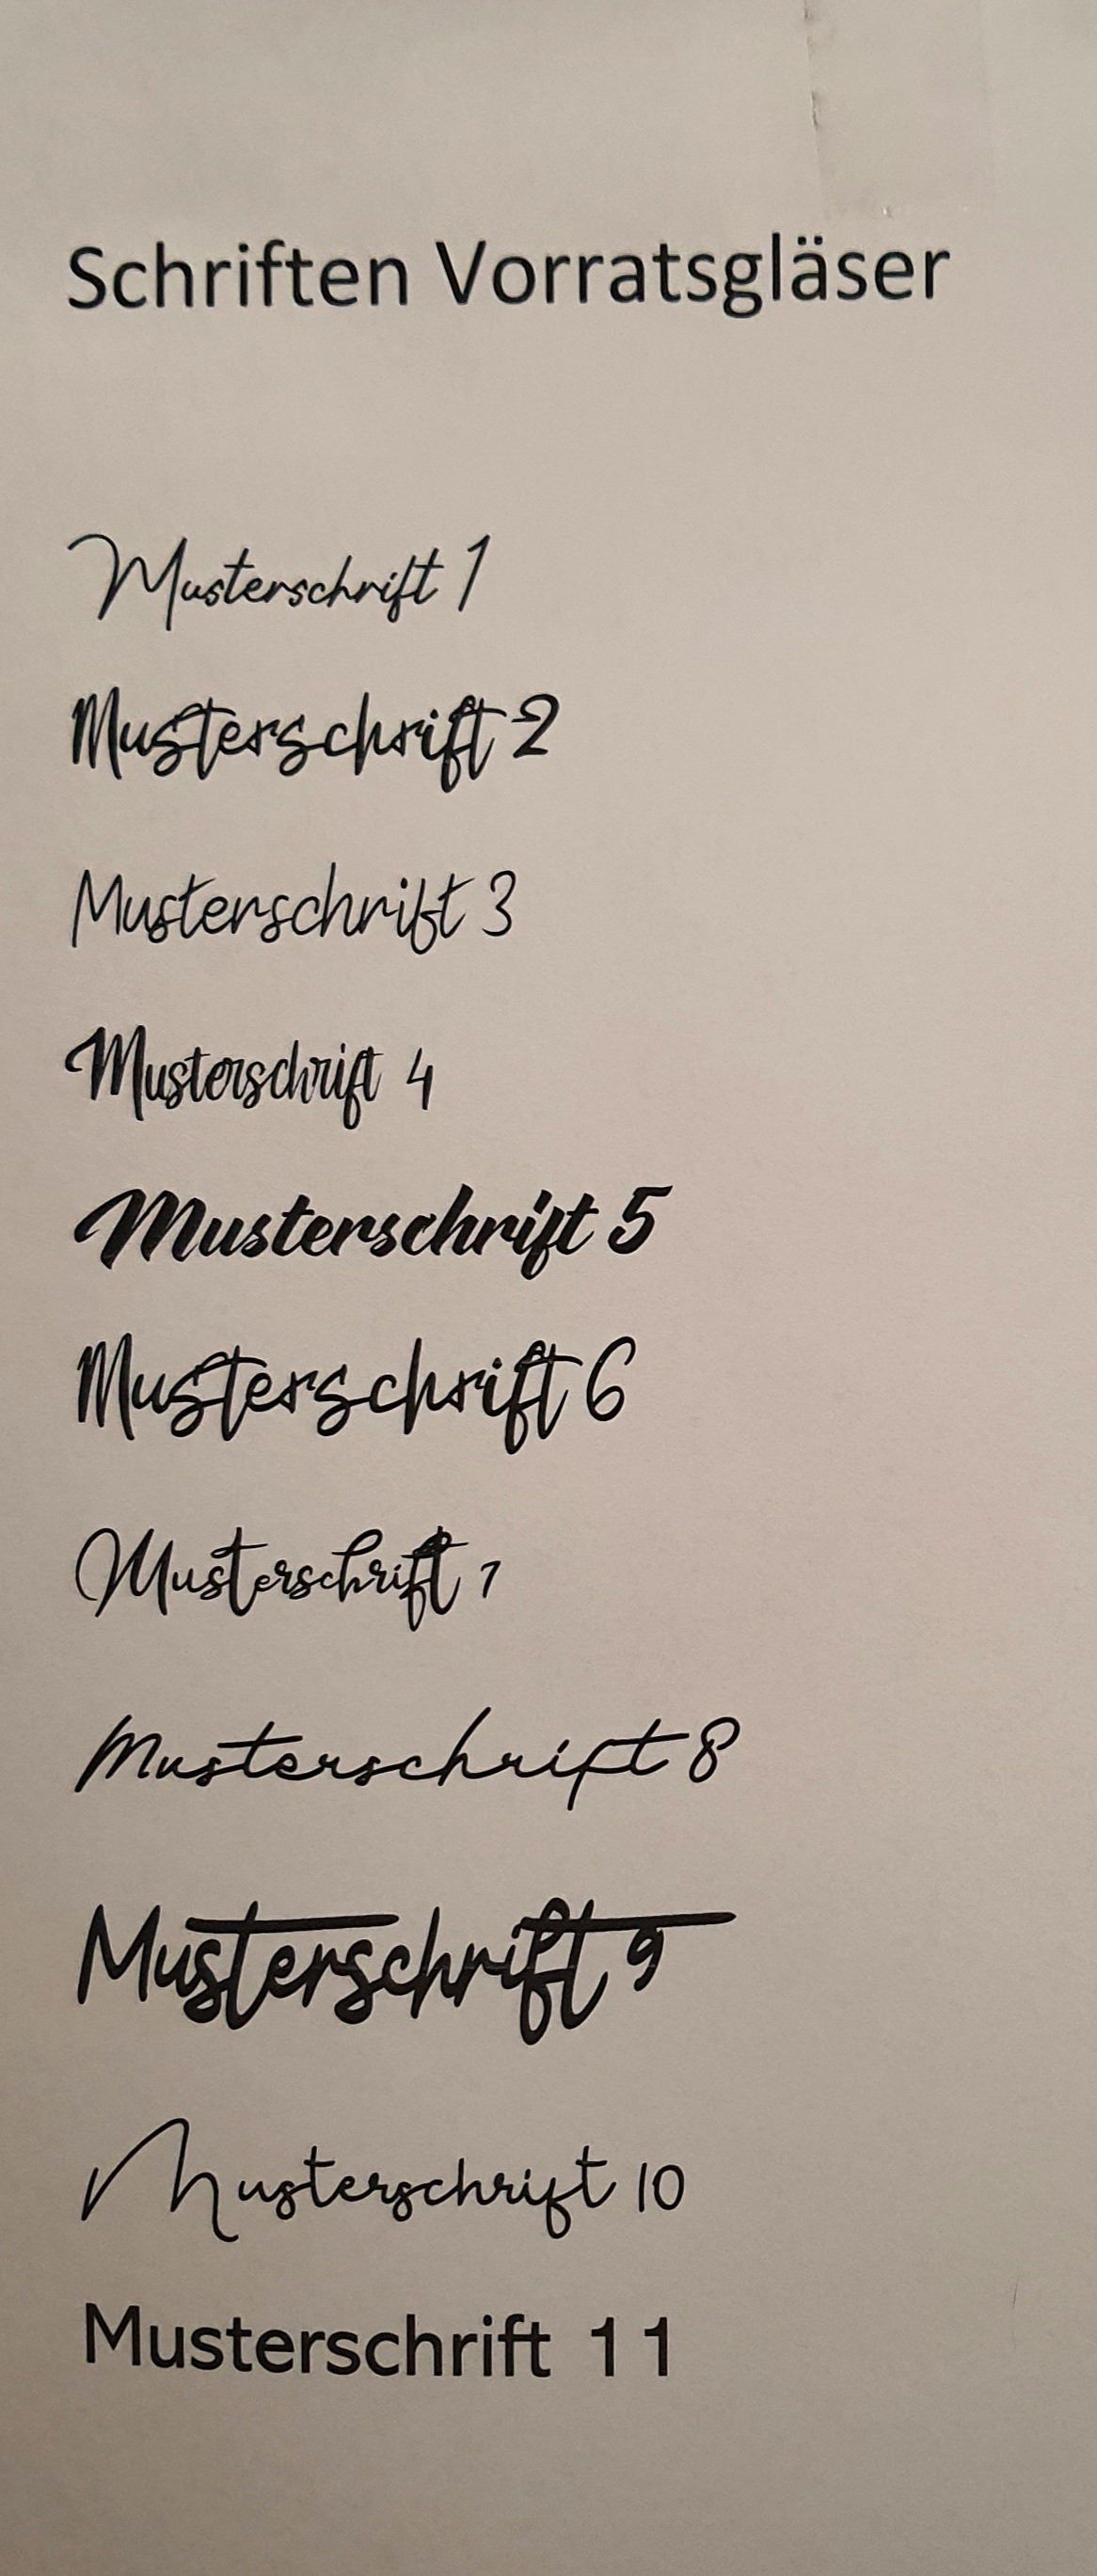 Schriften Vorratsgläser
Musterschrift 1
Musterschrift 2
Musterschrift 3
Musterschrift 4
Musterschrift 5
Musterschrift 6
Musterschrift 7
Musterschrift 8
Musterschrift 9
Musterschrift 10
Musterschrift 11